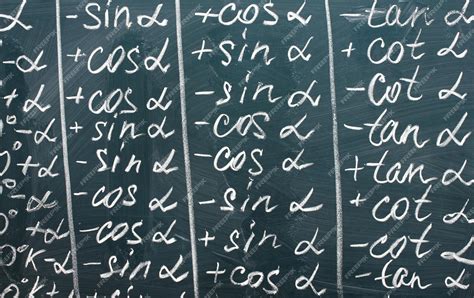 -sin α +cos α -tan α
-α +cos α +sin α +cot α
+α +cos α -sin α -cot α
-α +sin α -cos α -tan α
°+α -sin α -cos α +tan α
°-α -cos α -sin α +cot α
0°+α -cos α +sin α -cot α
0°K-α -sin α +cos α -tan α